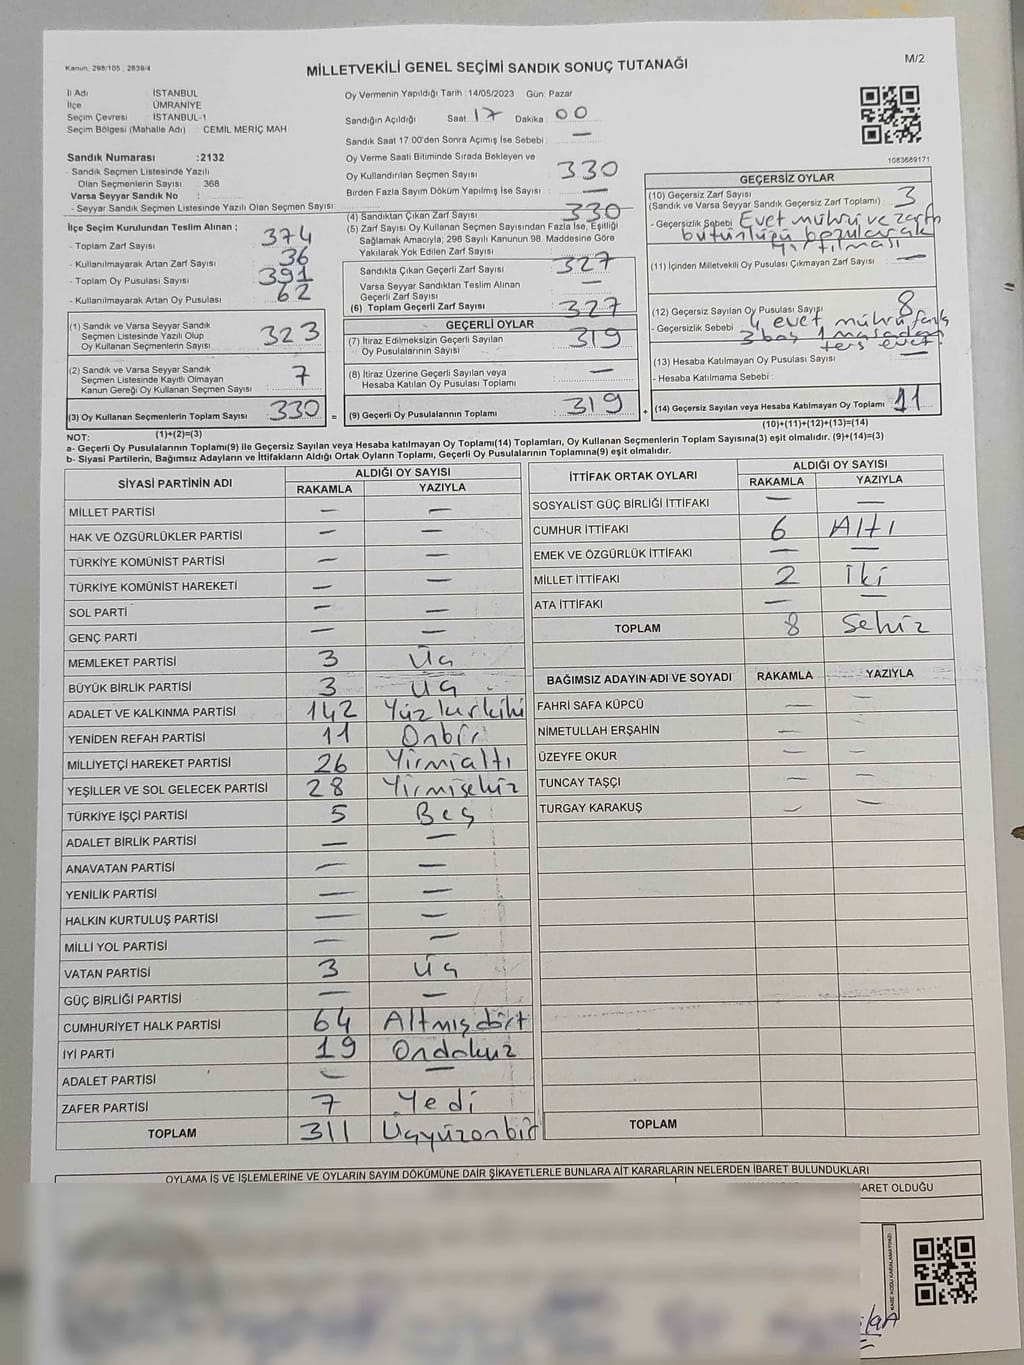 Kanun: 298/105 , 2839/4
M/2
MİLLETVEKİLİ GENEL SEÇİMİ SANDIK SONUÇ TUTANAĞI
İl Adı İSTANBUL
İlçe ÜMRANİYE
Seçim Çevresi İSTANBUL-1
Seçim Bölgesi (Mahalle Adı) : CEMİL MERİÇ MAH
Sandık Numarası :2132
- Sandık Seçmen Listesinde Yazılı
Olan Seçmenlerin Sayısı : 368
Varsa Seyyar Sandık No :
- Seyyar Sandık Seçmen Listesinde Yazılı Olan Seçmen Sayısı:
Oy Vermenin Yapıldığı Tarih :14/05/2023 Gün: Pazar
Sandığın Açıldığı Saat 17 Dakika 00
Sandık Saat 17:00'den Sonra Açımış İse Sebebi : —
Oy Verme Saati Bitiminde Sırada Bekleyen ve
Oy Kullandırılan Seçmen Sayısı : 330
Birden Fazla Sayım Döküm Yapılmış İse Sayısı : —
1083689171
İlçe Seçim Kurulundan Teslim Alınan ;
- Toplam Zarf Sayısı : 374
- Kullanılmayarak Artan Zarf Sayısı : 36
- Toplam Oy Pusulası Sayısı : 391
- Kullanılmayarak Artan Oy Pusulası : 62
(1) Sandık ve Varsa Seyyar Sandık
Seçmen Listesinde Yazılı Olup
Oy Kullanan Seçmenlerin Sayısı : 323
(2) Sandık ve Varsa Seyyar Sandık
Seçmen Listesinde Kayıtlı Olmayan
Kanun Gereği Oy Kullanan Seçmen Sayısı : 7
(3) Oy Kullanan Seçmenlerin Toplam Sayısı : 330 =
(4) Sandıktan Çıkan Zarf Sayısı : 330
(5) Zarf Sayısı Oy Kullanan Seçmen Sayısından Fazla İse, Eşitliği
Sağlamak Amacıyla; 298 Sayılı Kanunun 98. Maddesine Göre
Yakılarak Yok Edilen Zarf Sayısı :
Sandıkta Çıkan Geçerli Zarf Sayısı : 327
Varsa Seyyar Sandıktan Teslim Alınan
Geçerli Zarf Sayısı : —
(6) Toplam Geçerli Zarf Sayısı : 327
GEÇERLİ OYLAR
(7) İtiraz Edilmeksizin Geçerli Sayılan
Oy Pusulalarının Sayısı : 319
(8) İtiraz Üzerine Geçerli Sayılan veya
Hesaba Katılan Oy Pusulası Toplamı : —
(9) Geçerli Oy Pusulalarının Toplamı : 319 +
GEÇERSİZ OYLAR
(10) Geçersiz Zarf Sayısı
(Sandık ve Varsa Seyyar Sandık Geçersiz Zarf Toplamı) : 3
- Geçersizlik Sebebi : Evet mührü ve zarfın
bütünlüğü bozularak
yırtılması
(11) İçinden Milletvekili Oy Pusulası Çıkmayan Zarf Sayısı : —
(12) Geçersiz Sayılan Oy Pusulası Sayısı : 8
- Geçersizlik Sebebi : 4 evet mührü fazla
3 boş
ters evet
(13) Hesaba Katılmayan Oy Pusulası Sayısı : —
- Hesaba Katılmama Sebebi :
(14) Geçersiz Sayılan veya Hesaba Katılmayan Oy Toplamı : 11
(10)+(11)+(12)+(13)=(14)
NOT: (1)+(2)=(3)
a- Geçerli Oy Pusulaları Toplamı(9) ile Geçersiz Sayılan veya Hesaba katılmayan Oy Toplamı(14) Toplamları, Oy Kullanan Seçmenlerin Toplam Sayısına(3) eşit olmalıdır. (9)+(14)=(3)
b- Siyasi Partilerin, Bağımsız Adayların ve İttifakların Aldığı Ortak Oyların Toplamı, Geçerli Oy Pusulalarının Toplamına(9) eşit olmalıdır.
SİYASİ PARTİNİN ADI ALDIĞI OY SAYISI
RAKAMLA YAZIYLA
MİLLET PARTİSİ — —
HAK VE ÖZGÜRLÜKLER PARTİSİ — —
TÜRKİYE KOMÜNİST PARTİSİ — —
TÜRKİYE KOMÜNİST HAREKETİ — —
SOL PARTİ — —
GENÇ PARTİ — —
MEMLEKET PARTİSİ 3 Üç
BÜYÜK BİRLİK PARTİSİ 3 Üç
ADALET VE KALKINMA PARTİSİ 142 Yüzkırkiki
YENİDEN REFAH PARTİSİ 11 Onbir
MİLLİYETÇİ HAREKET PARTİSİ 26 Yirmialtı
YEŞİLLER VE SOL GELECEK PARTİSİ 28 Yirmisekiz
TÜRKİYE İŞÇİ PARTİSİ 5 Beş
ADALET BİRLİK PARTİSİ — —
ANAVATAN PARTİSİ — —
YENİLİK PARTİSİ — —
HALKIN KURTULUŞ PARTİSİ — —
MİLLİ YOL PARTİSİ — —
VATAN PARTİSİ 3 Üç
GÜÇ BİRLİĞİ PARTİSİ — —
CUMHURİYET HALK PARTİSİ 64 Altmışdört
İYİ PARTİ 19 Ondokuz
ADALET PARTİSİ — —
ZAFER PARTİSİ 7 Yedi
TOPLAM 311 Üçyüzonbir
İTTİFAK ORTAK OYLARI ALDIĞI OY SAYISI
RAKAMLA YAZIYLA
SOSYALİST GÜÇ BİRLİĞİ İTTİFAKI — —
CUMHUR İTTİFAKI 6 Altı
EMEK VE ÖZGÜRLÜK İTTİFAKI — —
MİLLET İTTİFAKI 2 İki
ATA İTTİFAKI — —
TOPLAM 8 Sekiz
BAĞIMSIZ ADAYIN ADI VE SOYADI RAKAMLA YAZIYLA
FAHRİ SAFA KÜPCÜ — —
NİMETULLAH ERŞAHİN — —
ÜZEYFE OKUR — —
TUNCAY TAŞÇI — —
TURGAY KARAKUŞ — —
TOPLAM
OYLAMA İŞ VE İŞLEMLERİNE VE OYLARIN SAYIM DÖKÜMÜNE DAİR ŞİKAYETLERLE BUNLARA AİT KARARLARIN NELERDEN İBARET BULUNDUKLARI
BARET OLDUĞU